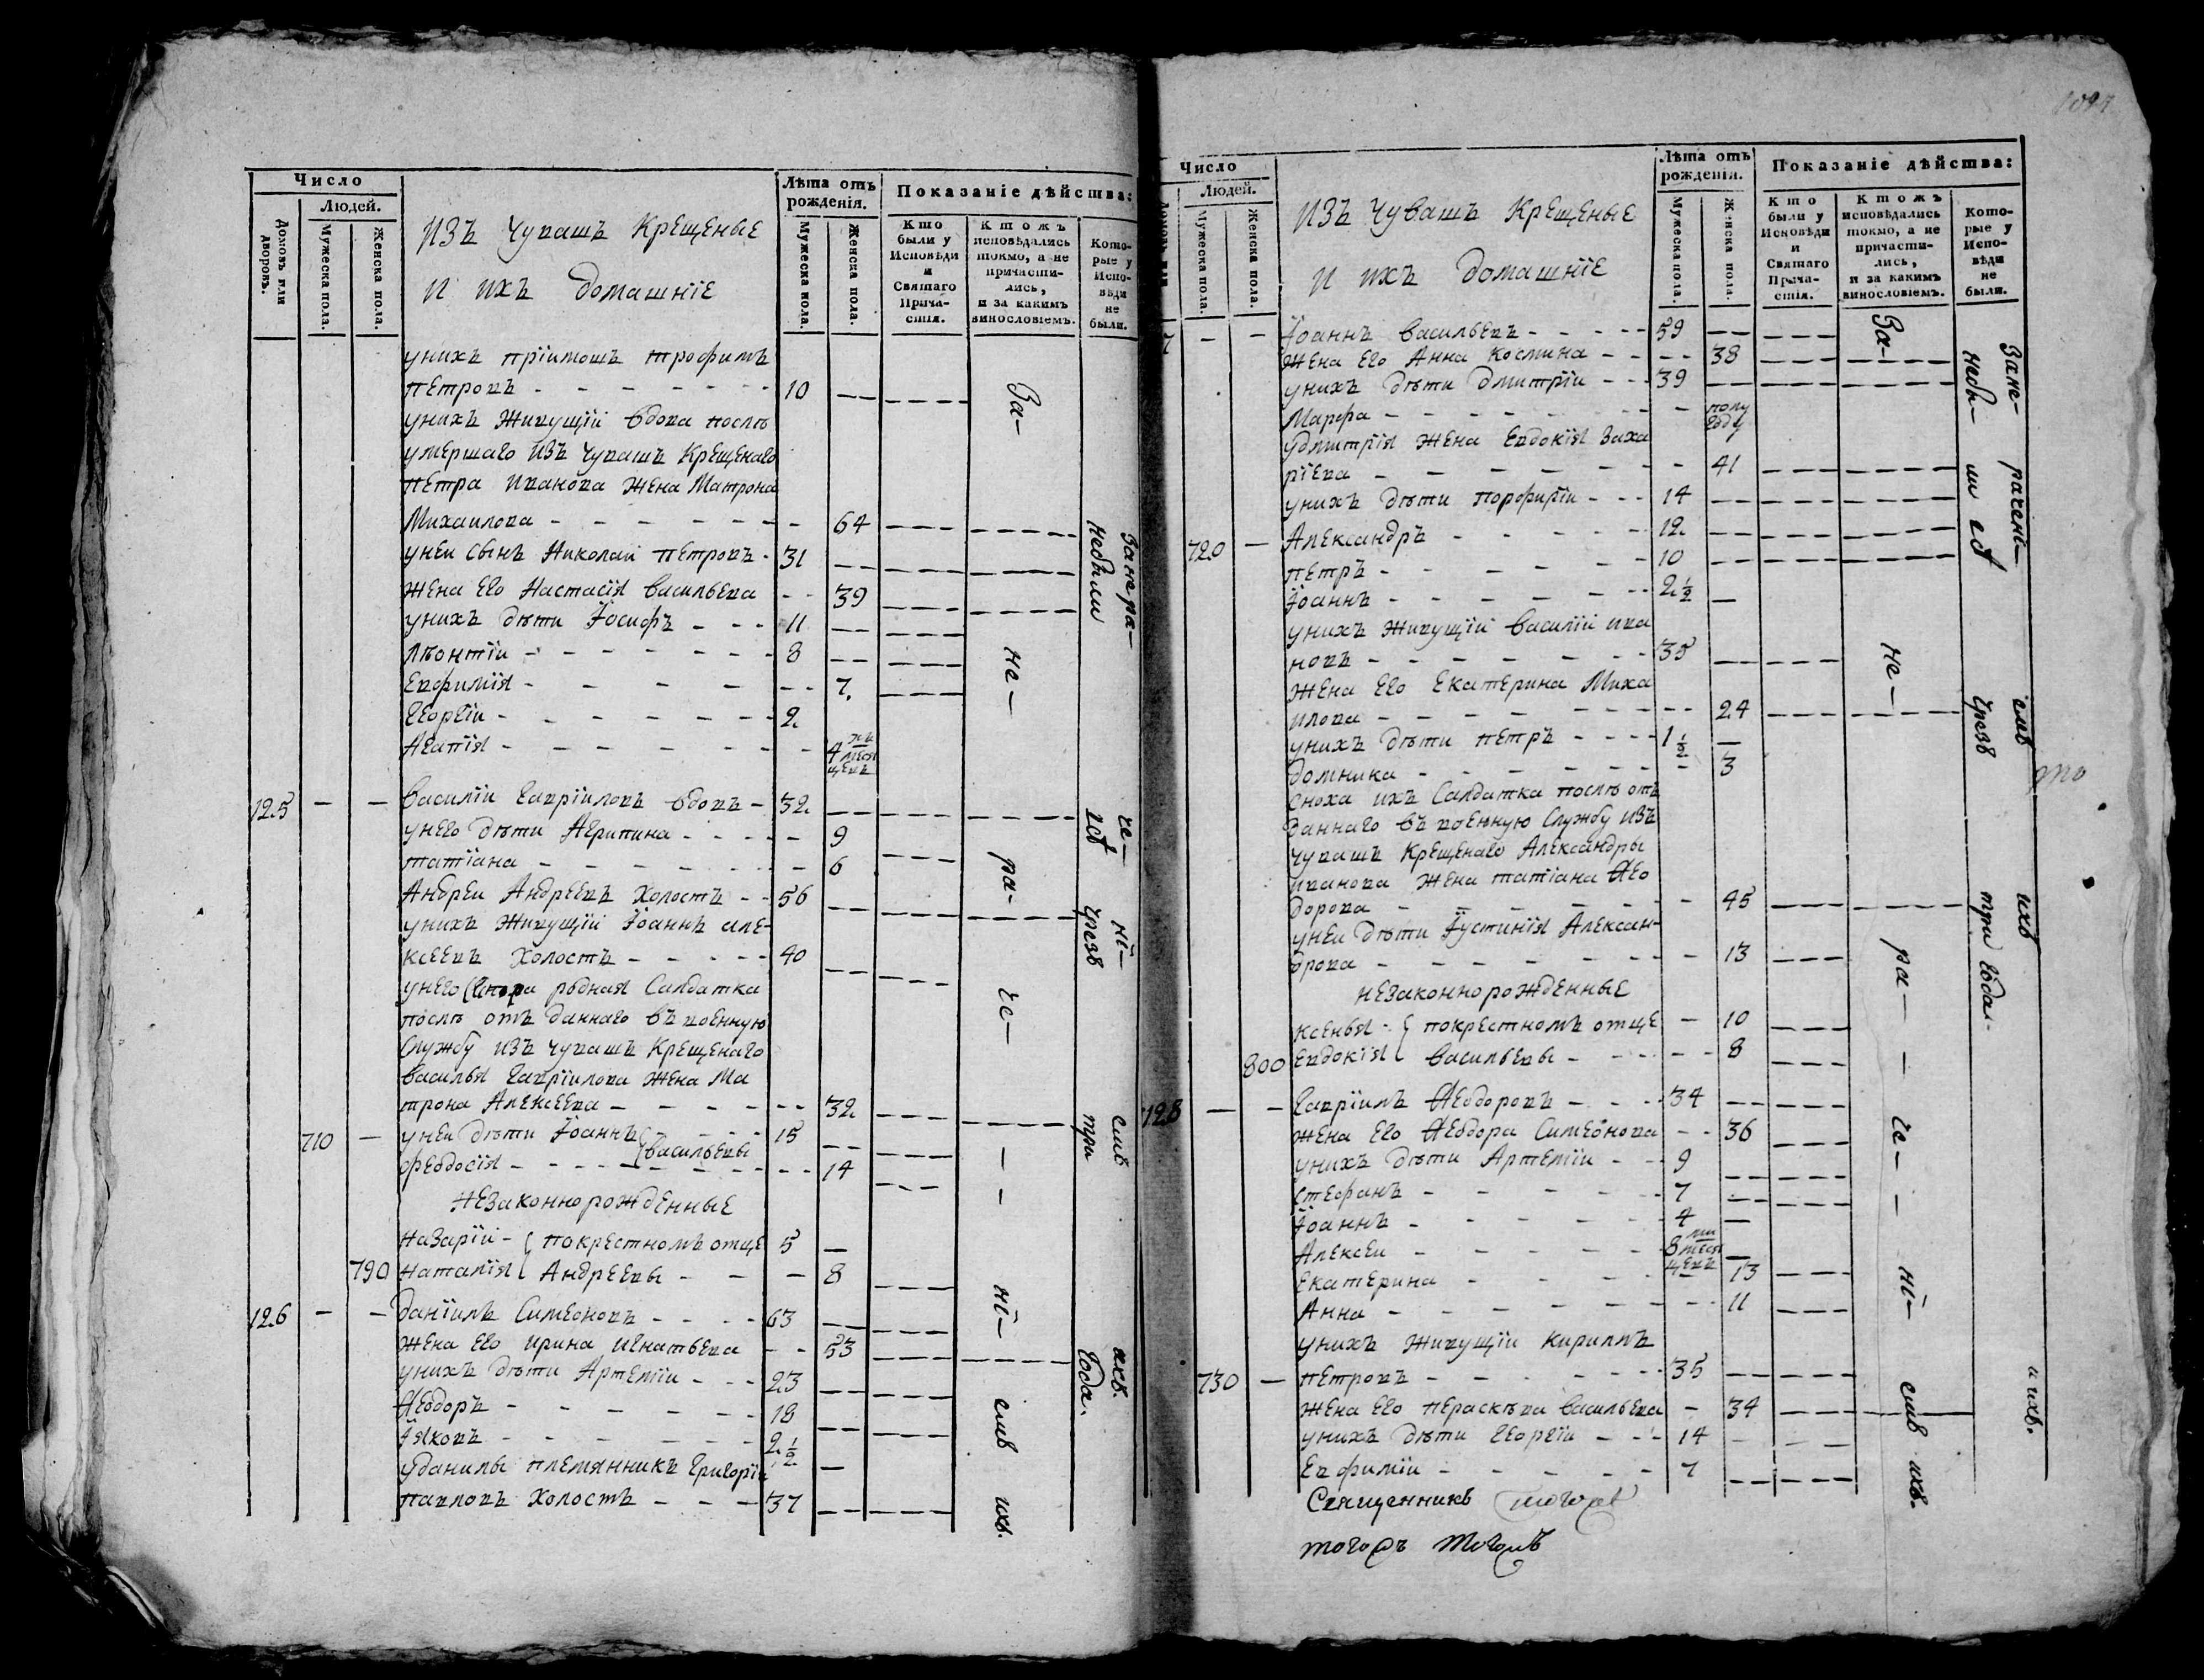 Число
Людей.
Домовъ или дворовъ.
Мужеска пола.
Женска пола.
изъ чувашъ крещеные
и ихъ домашніе
Лѣта отъ рожденія.
Мужеска пола.
Женска пола.
Показаніе дѣйства:
Кто были у Исповѣди и Святаго Причастія.
Ктожъ исповѣдались токмо, а не причастились, и за какимъ винословіемъ.
Которые у Исповѣди не были.
унихъ пріимошъ трофимъ
петровъ - 10
унихъ живущіи вдова послѣ
умершаго изъ чувашъ крещенаго
петра иванова жена Матрона
Михаилова - 64
унеи сынъ Николаи петровъ - 31
жена его Настасія васильева - 39
унихъ дѣти Іосифъ - 11
Леонтіи - 8
Евфимія - 7.
Георгіи - 2
Агапія - 4 месяцевъ
125 - - василіи гавріиловъ вдовъ - 32
унего дѣти Агрипина - 9
татіана - 6
Андреи Андреевъ холостъ - 56
унихъ живущіи Іоаннъ але-
ксеевъ холостъ - 40
унего рѡдная Салдатка
послѣ отъ даннаго въ военную
службу изъ чувашъ крещенаго
василья гавріилова жена Ма
трона Алексеева - 32
710 - унеи дѣти Іоаннъ васильевы 15
феодосія - 14
незаконнорожденные
Назаріи - покрестномъ отце 5
790 наталія Андреевы - 8
126 - - Даніилъ Симеоновъ - 63
жена его ирина игнатьева - 53
унихъ дѣти Артеміи - 23
Ѳеодоръ - 18
Іяковъ - 2 1/2
уданилы племянникъ григоріи
павловъ холостъ - 37
За- не- ра- че- ні- емъ ихъ.
За нера- че- ні- емъ ихъ.
небыли
чрезъ три года.
Число
Людей.
Мужеска пола.
Женска пола.
изъ чувашъ крещеные
и ихъ домашніе
Лѣта отъ рожденія.
Мужеска пола.
Женска пола.
Показаніе дѣйства:
Кто были у Исповѣди и Святаго Причастія.
Ктожъ исповѣдались токмо, а не причастились, и за какимъ винословіемъ.
Которые у Исповѣди не были.
7 - - Іоаннъ васильевъ - 59
жена его Анна космина - 38
унихъ дѣти дмитріи - 39
Марфа - полу году
удмитрія жена евдокія заха
ріева - 41
унихъ дѣти порфиріи - 14
720 - Александръ - 12
петръ - 10
Іоаннъ - 2 1/2
унихъ живущіи василіи ива
новъ - 35
жена его екатерина Миха
илова - 24
унихъ дѣти петръ - 1 1/2
домника - 3
сноха ихъ Салдатка послѣ отъ
даннаго въ военную службу изъ
чувашъ крещенаго Александры
иванова жена татіана Ѳео
дорова - 45
унеи дѣти Іустинія Алексан-
дрова - 13
незаконнорожденные
ксенья - покрестномъ отце - 10
800 евдокія васильевы - 8
128 - - гавріилъ Ѳеодоровъ - 34
жена его Ѳеодора Симеонова - 36
унихъ дѣти Артеміи - 9
стефанъ - 7
Іоаннъ - 4
Алексеи - 8 месяцевъ
екатерина - 13
Анна - 11
унихъ живущіи кириллъ
730 - петровъ - 35
жена его пераскева васильева - 34
унихъ дѣти георгіи - 14
Евфиміи - 7
За- не- ра- че- ні- емъ ихъ.
Зане- рачені- емъ ихъ
небы- ли
чрезъ три года.
Священникъ